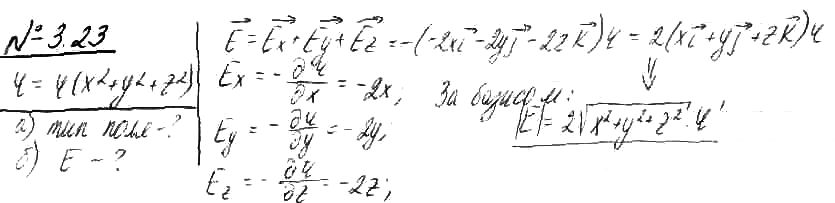 № 3.23
φ = φ(x²+y²+z²)
а) тип поле - ?
б) E - ?
E⃗ = E⃗x + E⃗y + E⃗z = -(-2xi⃗ - 2yj⃗ - 2zk⃗)φ = 2(xi⃗ + yj⃗ + zk⃗)φ
Ex = - ∂φ/∂x = -2x;
Ey = - ∂φ/∂y = -2y;
Ez = - ∂φ/∂z = -2z;
⇓
За базисом:
|E| = 2√(x²+y²+z²) · φ'